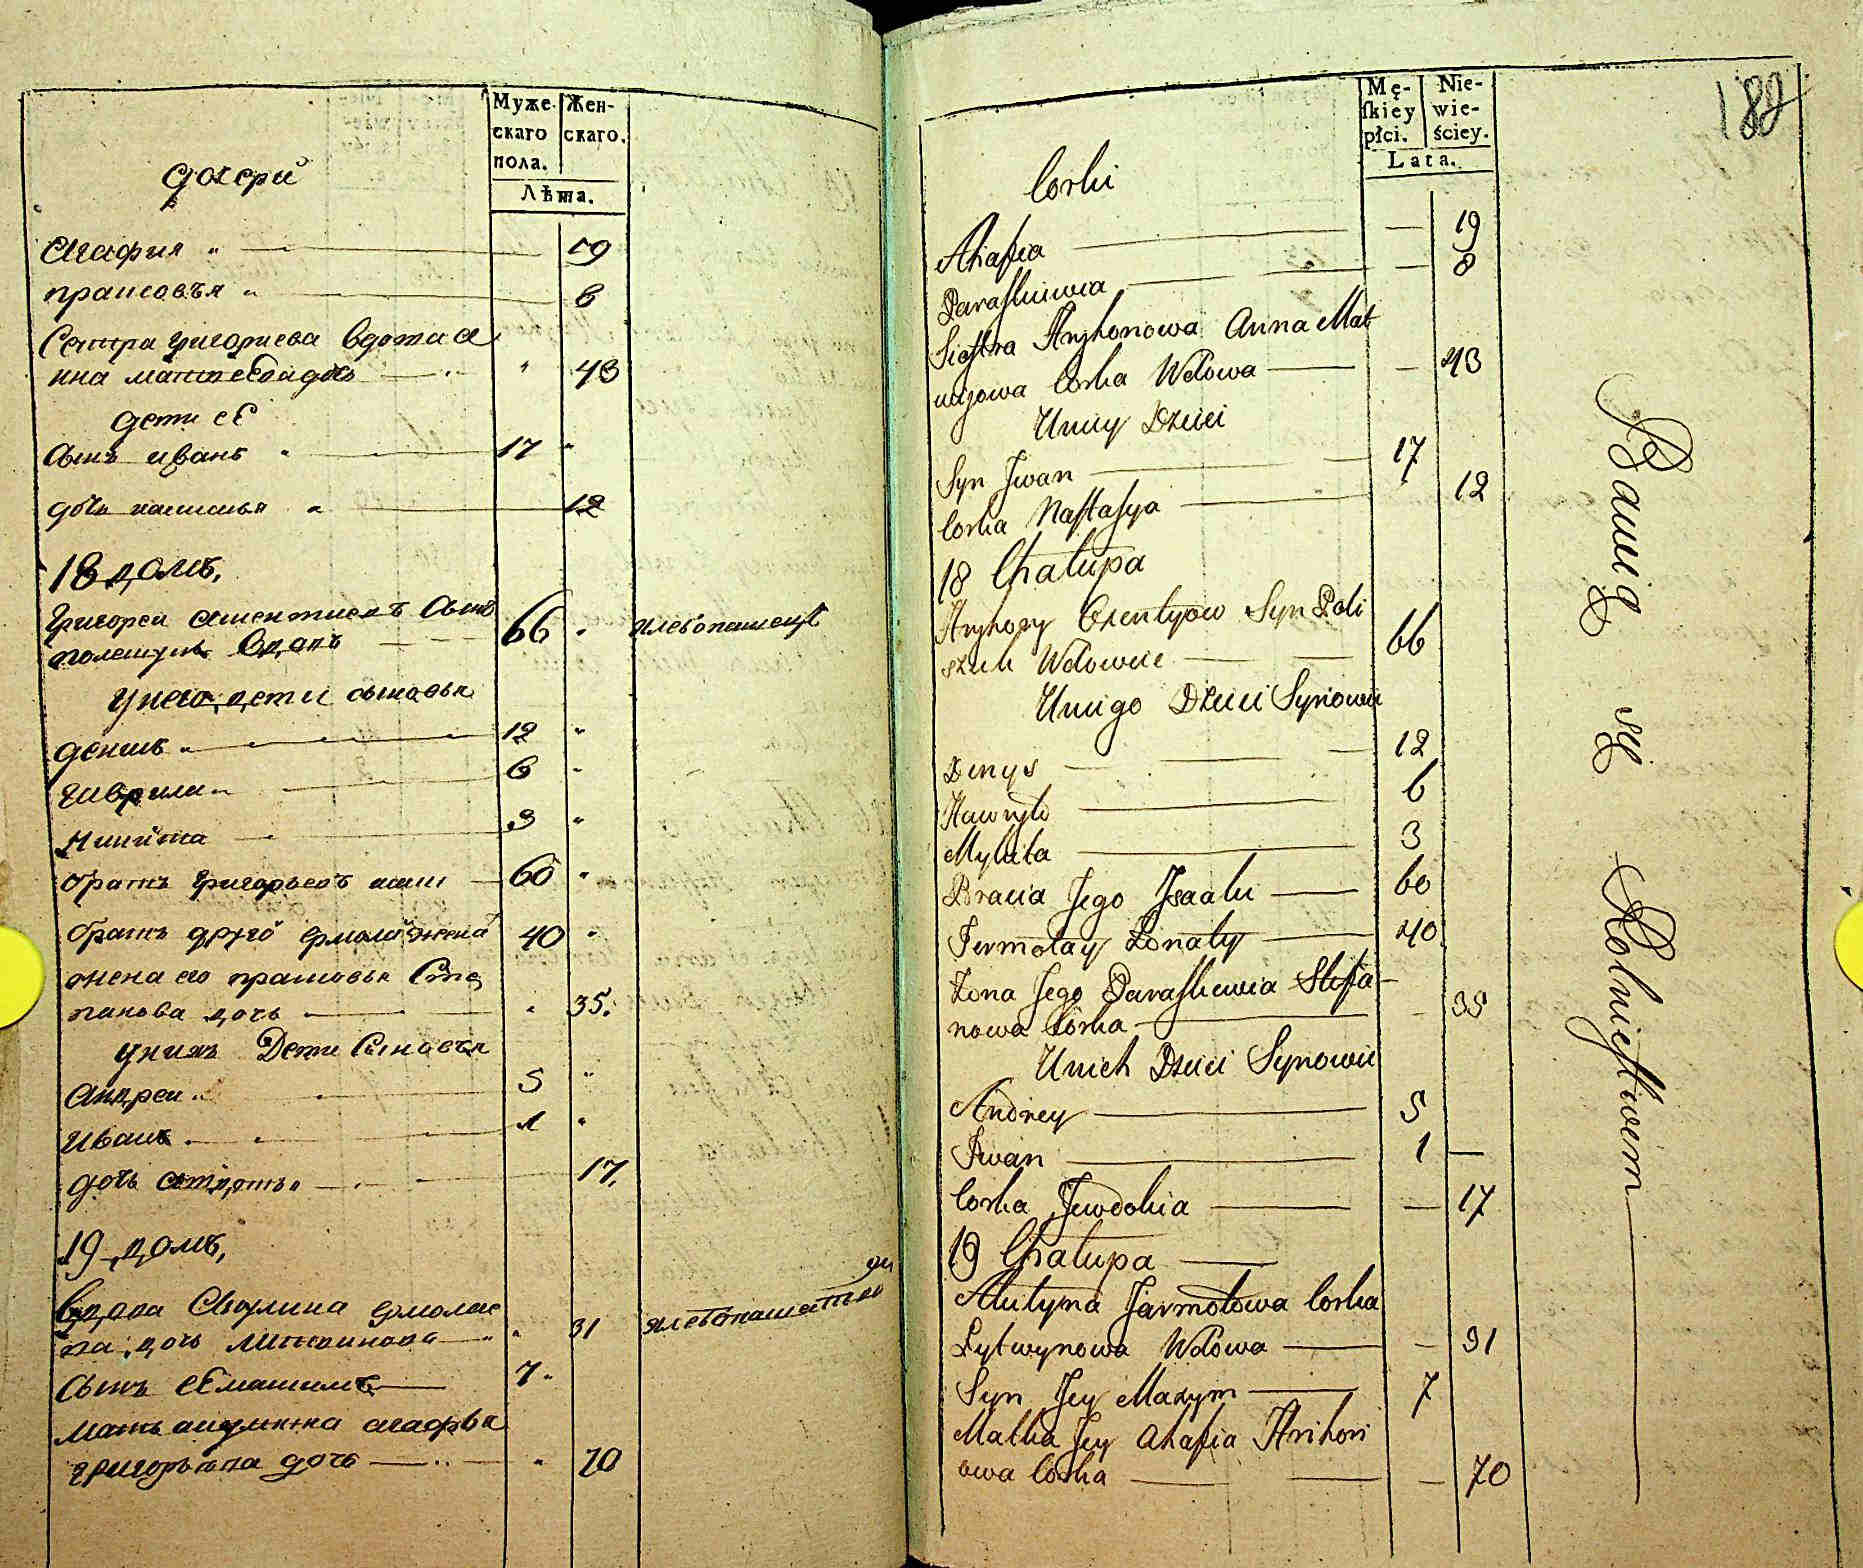 Муже-
скаго
пола.
Жен-
скаго.
Лѣта.
дочери
агафия 19
прасковъя 8
Сестра григориева вдова а
нна матвеева дочь 43
дети еЕ
Сынъ иванъ 17
дочь настасья 12
18 домъ,
Григореи Сынъ
полещукъ вдовъ 66 хлебопашецъ
у него дети сыновья
денисъ 12
гаврила 6
микита 3
братъ григорьевъ 60
братъ друго ермолай женатъ 40
жена его прасковья Сте
панова дочь 35.
у нихъ Дети Сыновья
Андреи 5
иванъ 1
дочь 17.
19 домъ,
Вдова Акулина ермолае
ва дочь литвинова 31
Сынъ еЕ максимъ 7
мать акулинина агафья
григорьева дочь 70
188
Mę-
ſkiey
płci.
Nie-
wie-
ściey.
Lata.
Corki
Ahafia 19
Paraskiewia 8
Siostra Hryhorowa Anna Mat
wijowa Corka Wdowa 43
Uniey Dzieci
Syn Jwan 17
Corka Nastasya 12
18 Chałupa
Hryhory Syn Poli
szuk Wdowiec 66
Uniego Dzieci Synowie
Denys 12
Hawryło 6
Mykita 3
Bracia Jego Jsaaki 60
Jermołay Żonaty 40
Żona Jego Paraskiewia Stefa-
nowa Corka 35
Unich Dzieci Synowie
Andrey 5
Jwan 1
Corka Jewdokia 17
19 Chałupa
Akulyna Jarmołowa Corka
Lytwynowa Wdowa 31
Syn Jey Maxym 7
Matka Jey Ahafia Hrihori
owa Corka 70
Bawią się Rolnictwem